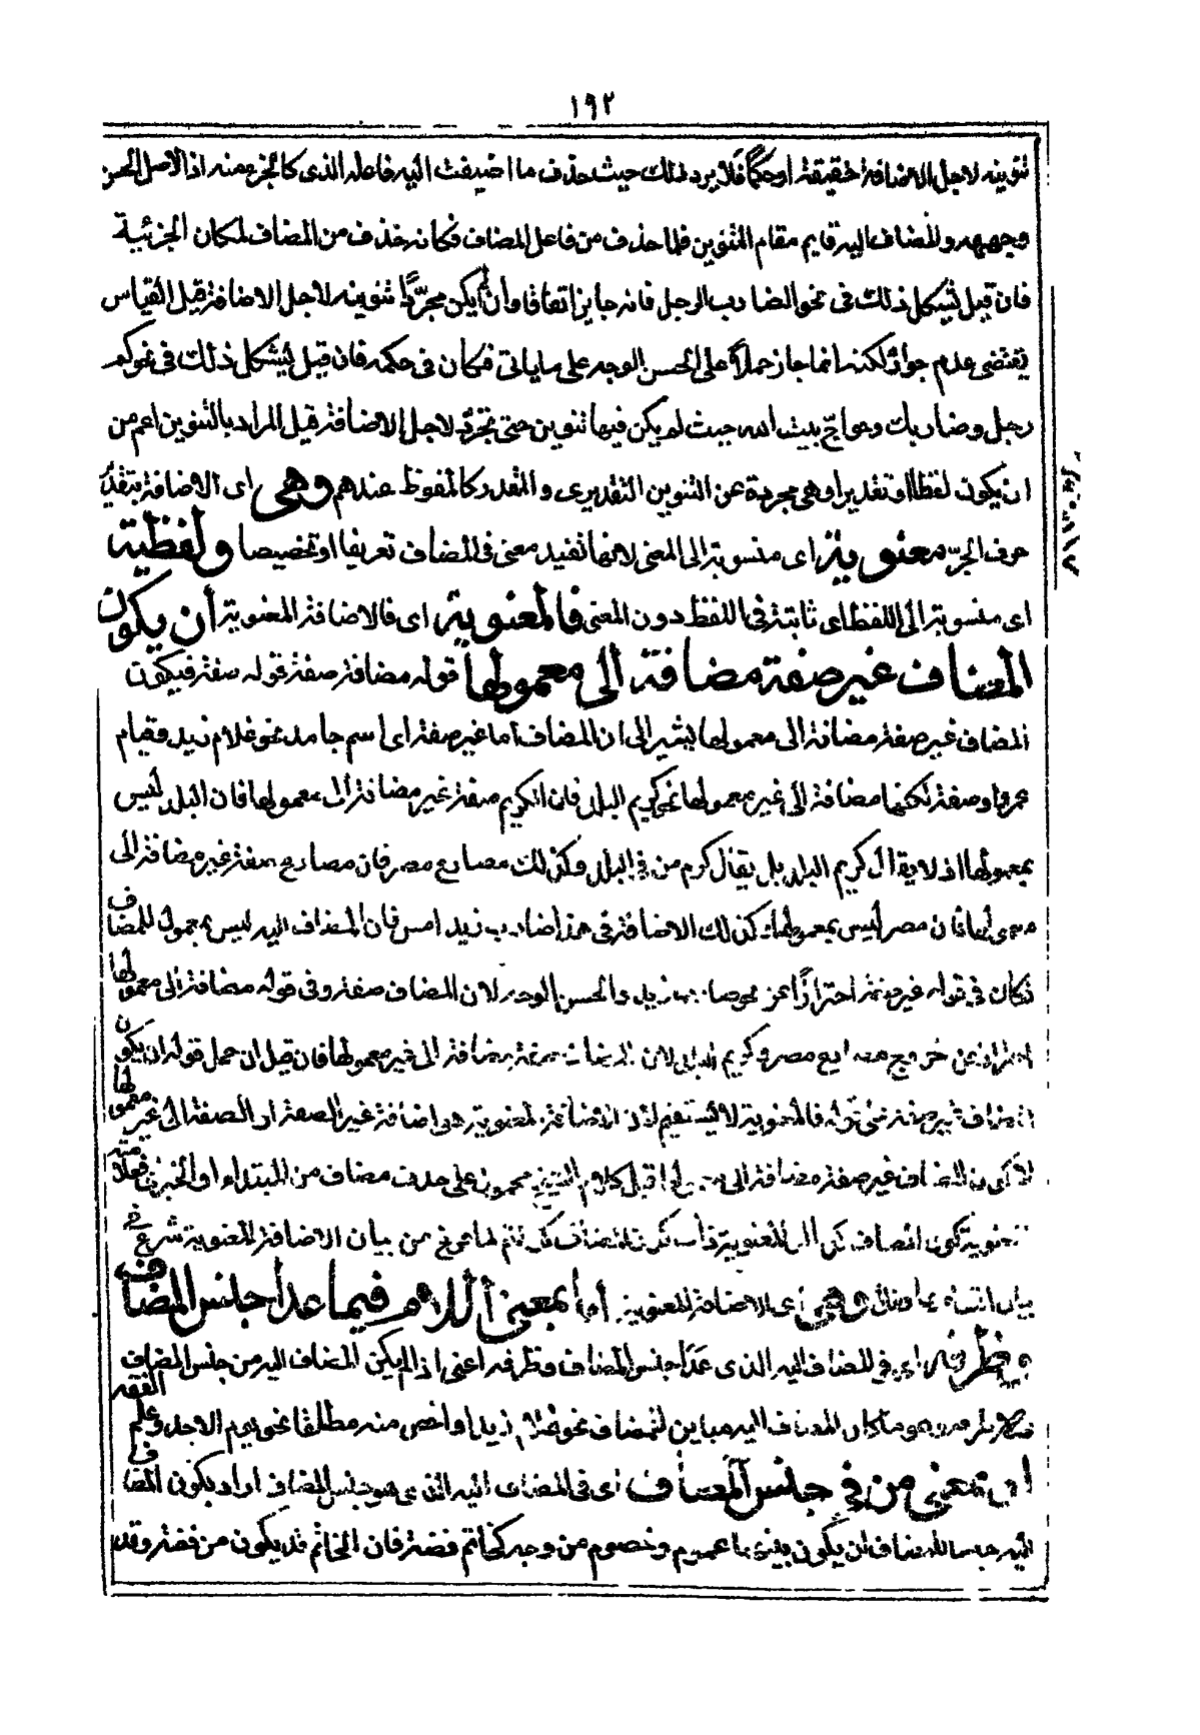 ١٩٢
تنوينه لاجل الاضافة حقيقة او حكما فلا يرد ذلك حيث حذف ما اضيفت اليه فاعله الذى كالجزء منه اذ الاصل الحسن
وجهه والمضاف اليه قايم مقام التنوين فلما حذف من فاعل المضاف فكانه حذف من المضاف لمكان الجزئية
فان قيل يشكل ذلك فى نحو الضارب الرجل فانه جايز اتفاقا وان لم يكن مجردا تنوينه لاجل الاضافة قيل القياس
يقتضى عدم جوازه لكنه انما جاز حملا على الحسن الوجه على ما ياتى فكان فى حكمه فان قيل يشكل ذلك فى نحو كم
رجل وضاربك وحواج بيت الله حيث لم يكن فيها تنوين حتى تجرد لاجل الاضافة قيل المراد بالتنوين اعم من
ان يكون لفظا او تقديرا وهى مجردة عن التنوين التقديرى والمقدر كالملفوظ عندهم وهى اى الاضافة بتقدير
حرف الجر معنوية اى منسوبة الى المعنى لانها تفيد معنى فى المضاف تعريفا او تخصيصا ولفظية
اى منسوبة الى اللفظ اى ثابتة فى اللفظ دون المعنى فالمعنوية اى فالاضافة المعنوية أن يكون
المضاف غير صفة مضافة الى معمولها قوله مضافة صفة قوله صفة فيكون
المضاف غير صفة مضافة الى معمولها يشير الى ان المضاف اما غير صفة اى اسم جامد نحو غلام زيد وقيام
عمرو او صفة لكنها مضافة الى غير معمولها نحو كريم البلد فان الكريم صفة غير مضافة الى معمولها فان البلد ليس
بمعمولها اذ لا يقال كريم البلد بل يقال كرم من فى البلد وكذلك مصارع مصر فان مصارع صفة غير مضافة الى
معمولها فان مصر ليس بمعمولها كذلك الاضافة فى هذا ضارب زيد امس فان المضاف اليه ليس بمعمول للمضاف
فكان فى قوله غير صفة احترازا عن نحو ضارب زيد والحسن الوجه لان المضاف صفة وفى قوله مضافة الى معمولها
احتراز عن خروج مصارع مصر وكريم البلد لان المضاف صفة مضافة الى غير معمولها فان قيل ان حمل قوله ان يكون
المضاف غير صفة على قوله فالمعنوية لا يستقيم لان الاضافة المعنوية هى اضافة غير الصفة او الصفة الى غير معمولها
لا كون المضاف غير صفة مضافة الى معمولها قيل كلام الشيخ محمول على حذف مضاف من المبتداء او الخبر
المعنوية كون المضاف فلما فرغ من بيان الاضافة المعنوية شرع فى
بيان وهى اى الاضافة المعنوية إما بمعنى اللام فيما عدا جنس المضاف
وظرفه اى فى المضاف اليه الذى عدا جنس المضاف وظرفه اعنى اذا لم يكن المضاف اليه من جنس المضاف
وهو ما كان المضاف اليه مباين للمضاف نحو غلام زيد او اخص منه مطلقا نحو يوم الاحد وعلم الفقه
أو بمعنى من فى جنس المضاف اى فى المضاف اليه الذى هو جنس المضاف اراد بكون المضاف
اليه جنس المضاف ان يكون بينهما عموم وخصوص من وجه كخاتم فضة فان الخاتم قد يكون من فضة وقد